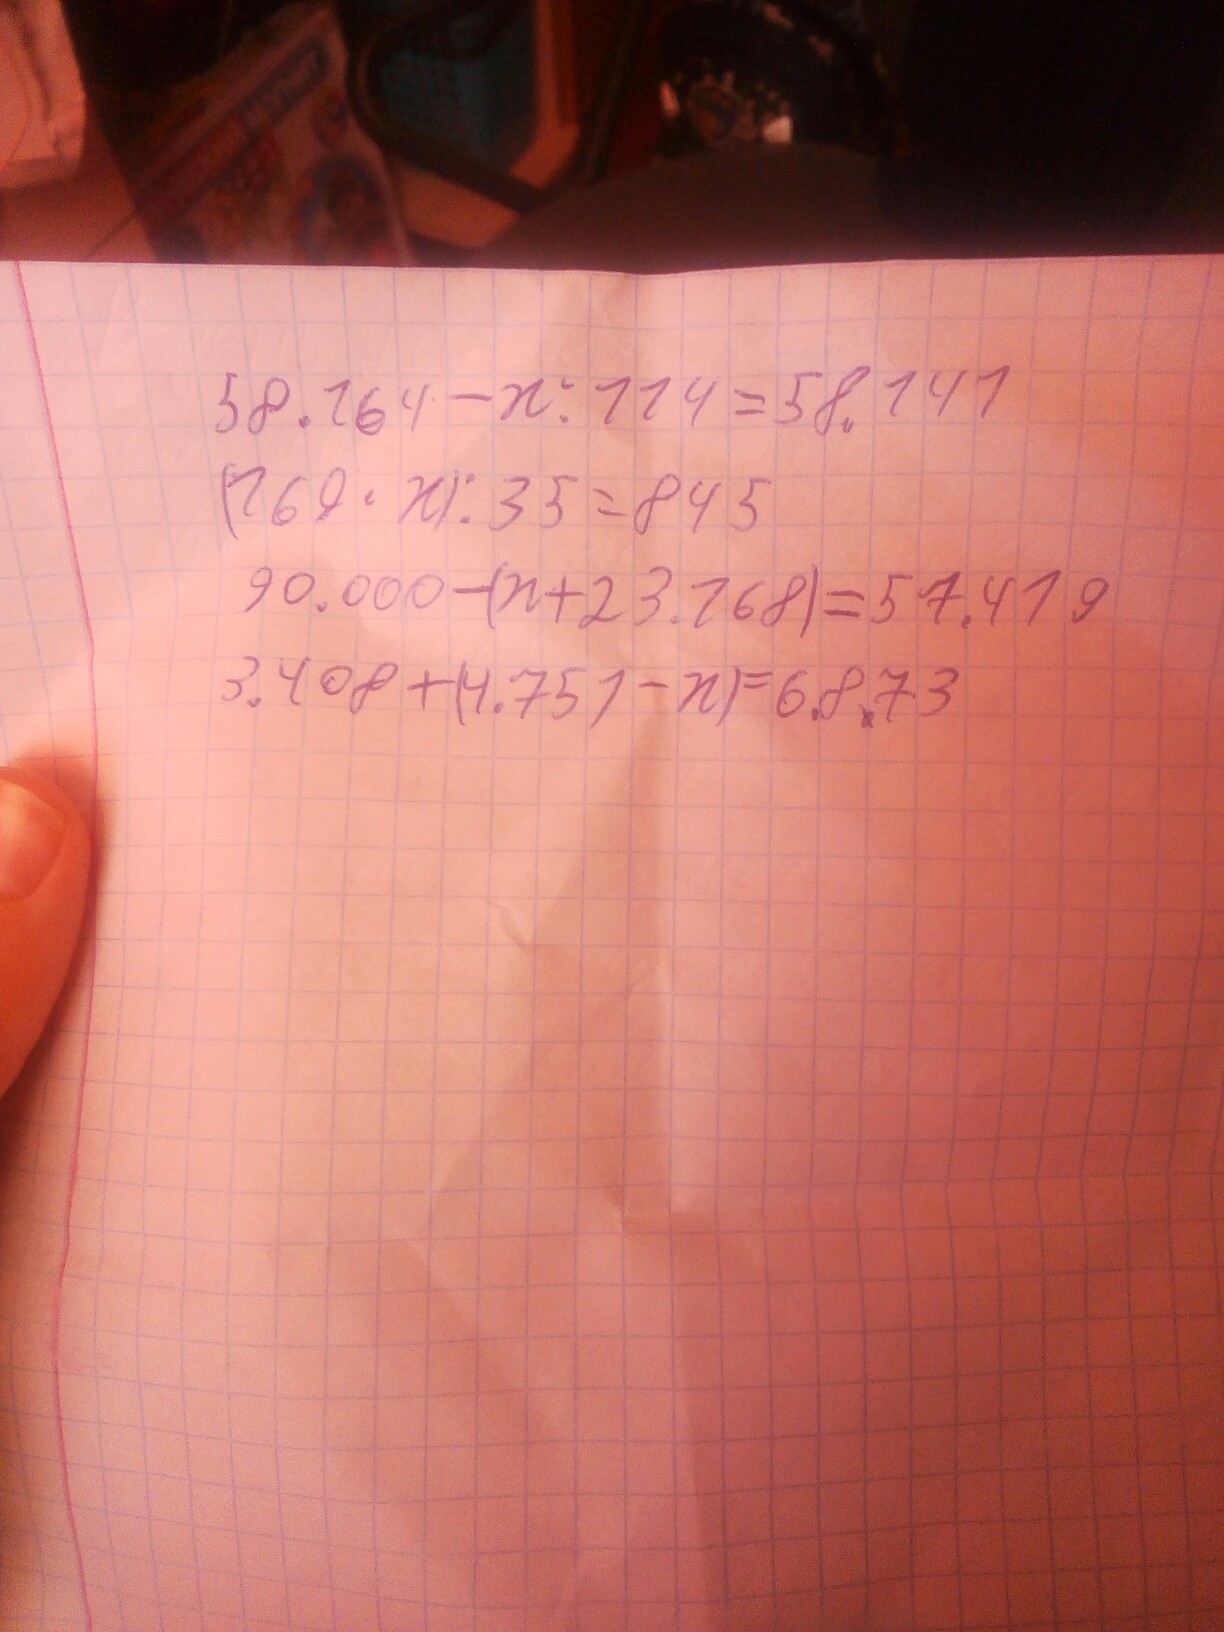 58.164-x:114=58.141
(169·x):35=845
90.000-(x+23.168)=57.419
3.408+(4.751-x)=6.8.73